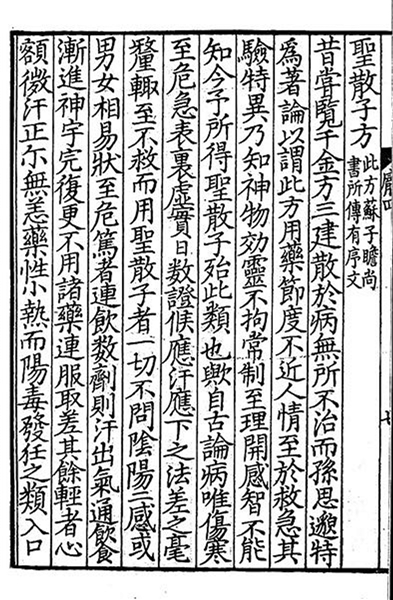 聖散子方
此方蘇子瞻尚
書所傳有序文
昔嘗覽千金方三建散於病無所不治而孫思邈特
爲著論以謂此方用藥節度不近人情至於救急其
驗特異乃知神物効靈不拘常制至理開感智不能
知今予所得聖散子殆此類也歟自古論病唯傷寒
至危急表裏虛實日数證候應汗應下之法差之毫
釐輒至不救而用聖散子者一切不問隂陽二感或
男女相易狀至危篤者連飲数劑則汗出氣通飲食
漸進神宇完復更不用諸藥連服取差其餘輕者心
額微汗正尓無恙藥性小熱而陽毒發狂之類入口